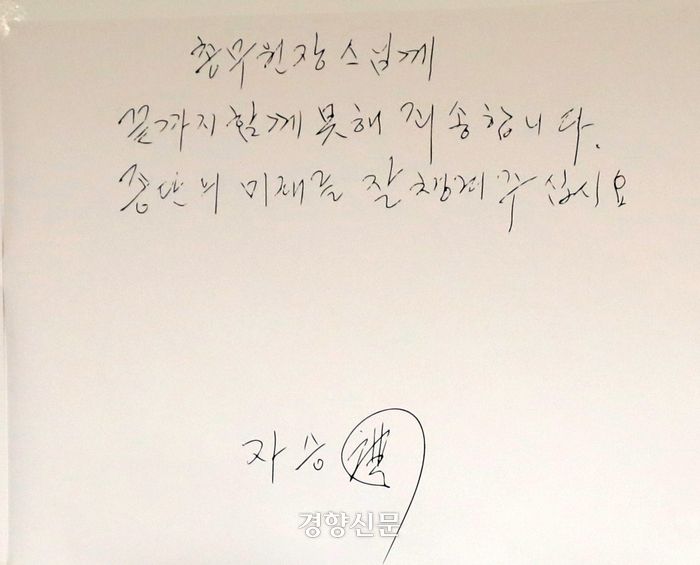 총무원장스님께
끝까지함께못해 죄송합니다.
종단의 미래를 잘 챙겨주십시요
자승
경향신문